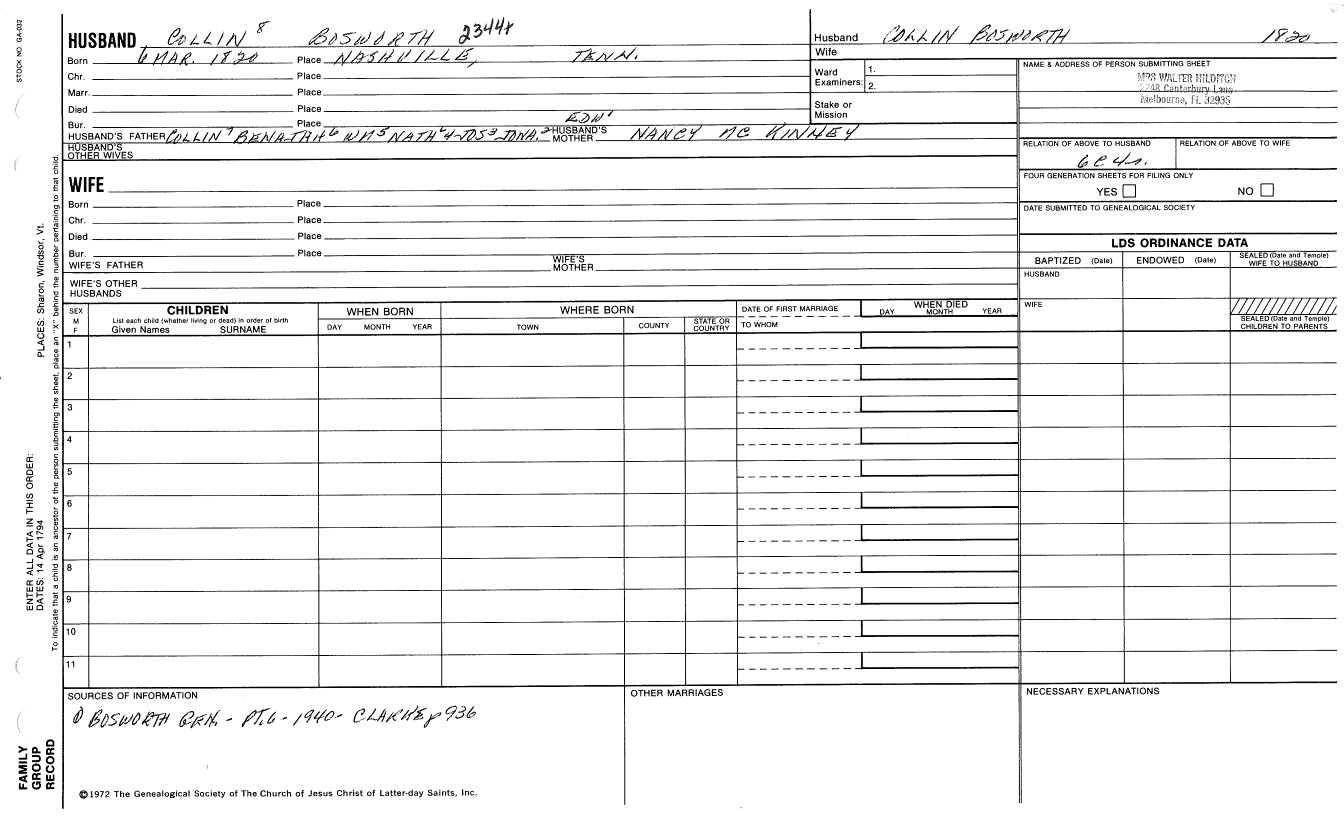 STOCK NO. GA-032
HUSBAND COLLIN 8 BOSWORTH 2344x
Born 6 MAR. 1820 Place NASHVILLE, TENN.
Chr. Place
Marr. Place
Died Place
Bur. Place
EDW 1
HUSBAND'S FATHER COLLIN 7 BENAJAH 6 WM 5 NATH 4 JOS 3 JONA. 2 HUSBAND'S MOTHER NANCY MC KINNEY
HUSBAND'S OTHER WIVES
WIFE
Born Place
Chr. Place
Died Place
Bur. Place
WIFE'S FATHER WIFE'S MOTHER
WIFE'S OTHER HUSBANDS
Husband COLLIN BOSWORTH 1820
Wife
Ward Examiners: 1.
2.
Stake or Mission
NAME & ADDRESS OF PERSON SUBMITTING SHEET
MRS WALTER HILDITCH
2248 Canterbury Lane
Melbourne, FL 32935
RELATION OF ABOVE TO HUSBAND RELATION OF ABOVE TO WIFE
6C4r.
FOUR GENERATION SHEETS FOR FILING ONLY
YES NO
DATE SUBMITTED TO GENEALOGICAL SOCIETY
LDS ORDINANCE DATA
BAPTIZED (Date) ENDOWED (Date) SEALED (Date and Temple) WIFE TO HUSBAND
HUSBAND
WIFE
SEALED (Date and Temple) CHILDREN TO PARENTS
SEX M F
CHILDREN
List each child (whether living or dead) in order of birth
Given Names SURNAME
WHEN BORN
DAY MONTH YEAR
WHERE BORN
TOWN COUNTY STATE OR COUNTRY
DATE OF FIRST MARRIAGE
TO WHOM
WHEN DIED
DAY MONTH YEAR
1
2
3
4
5
6
7
8
9
10
11
SOURCES OF INFORMATION
① BOSWORTH GEN. - PT. 6 - 1940 - CLARKE p 936
OTHER MARRIAGES
NECESSARY EXPLANATIONS
©1972 The Genealogical Society of The Church of Jesus Christ of Latter-day Saints, Inc.
PLACES: Sharon, Windsor, Vt.
ENTER ALL DATA IN THIS ORDER:
DATES: 14 Apr 1794
To indicate that a child is an ancestor of the person submitting the sheet, place an "X" behind the number pertaining to that child.
FAMILY
GROUP
RECORD